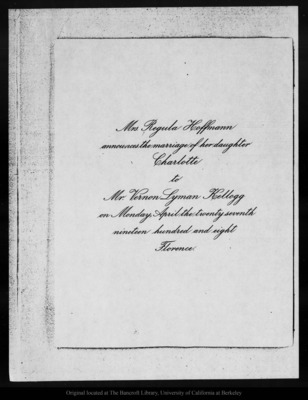 Mrs Regula Hoffmann
announces the marriage of her daughter
Charlotte
to
Mr. Vernon Lyman Kellogg
on Monday, April the twenty seventh
nineteen hundred and eight
Florence.
Original located at The Bancroft Library, University of California at Berkeley